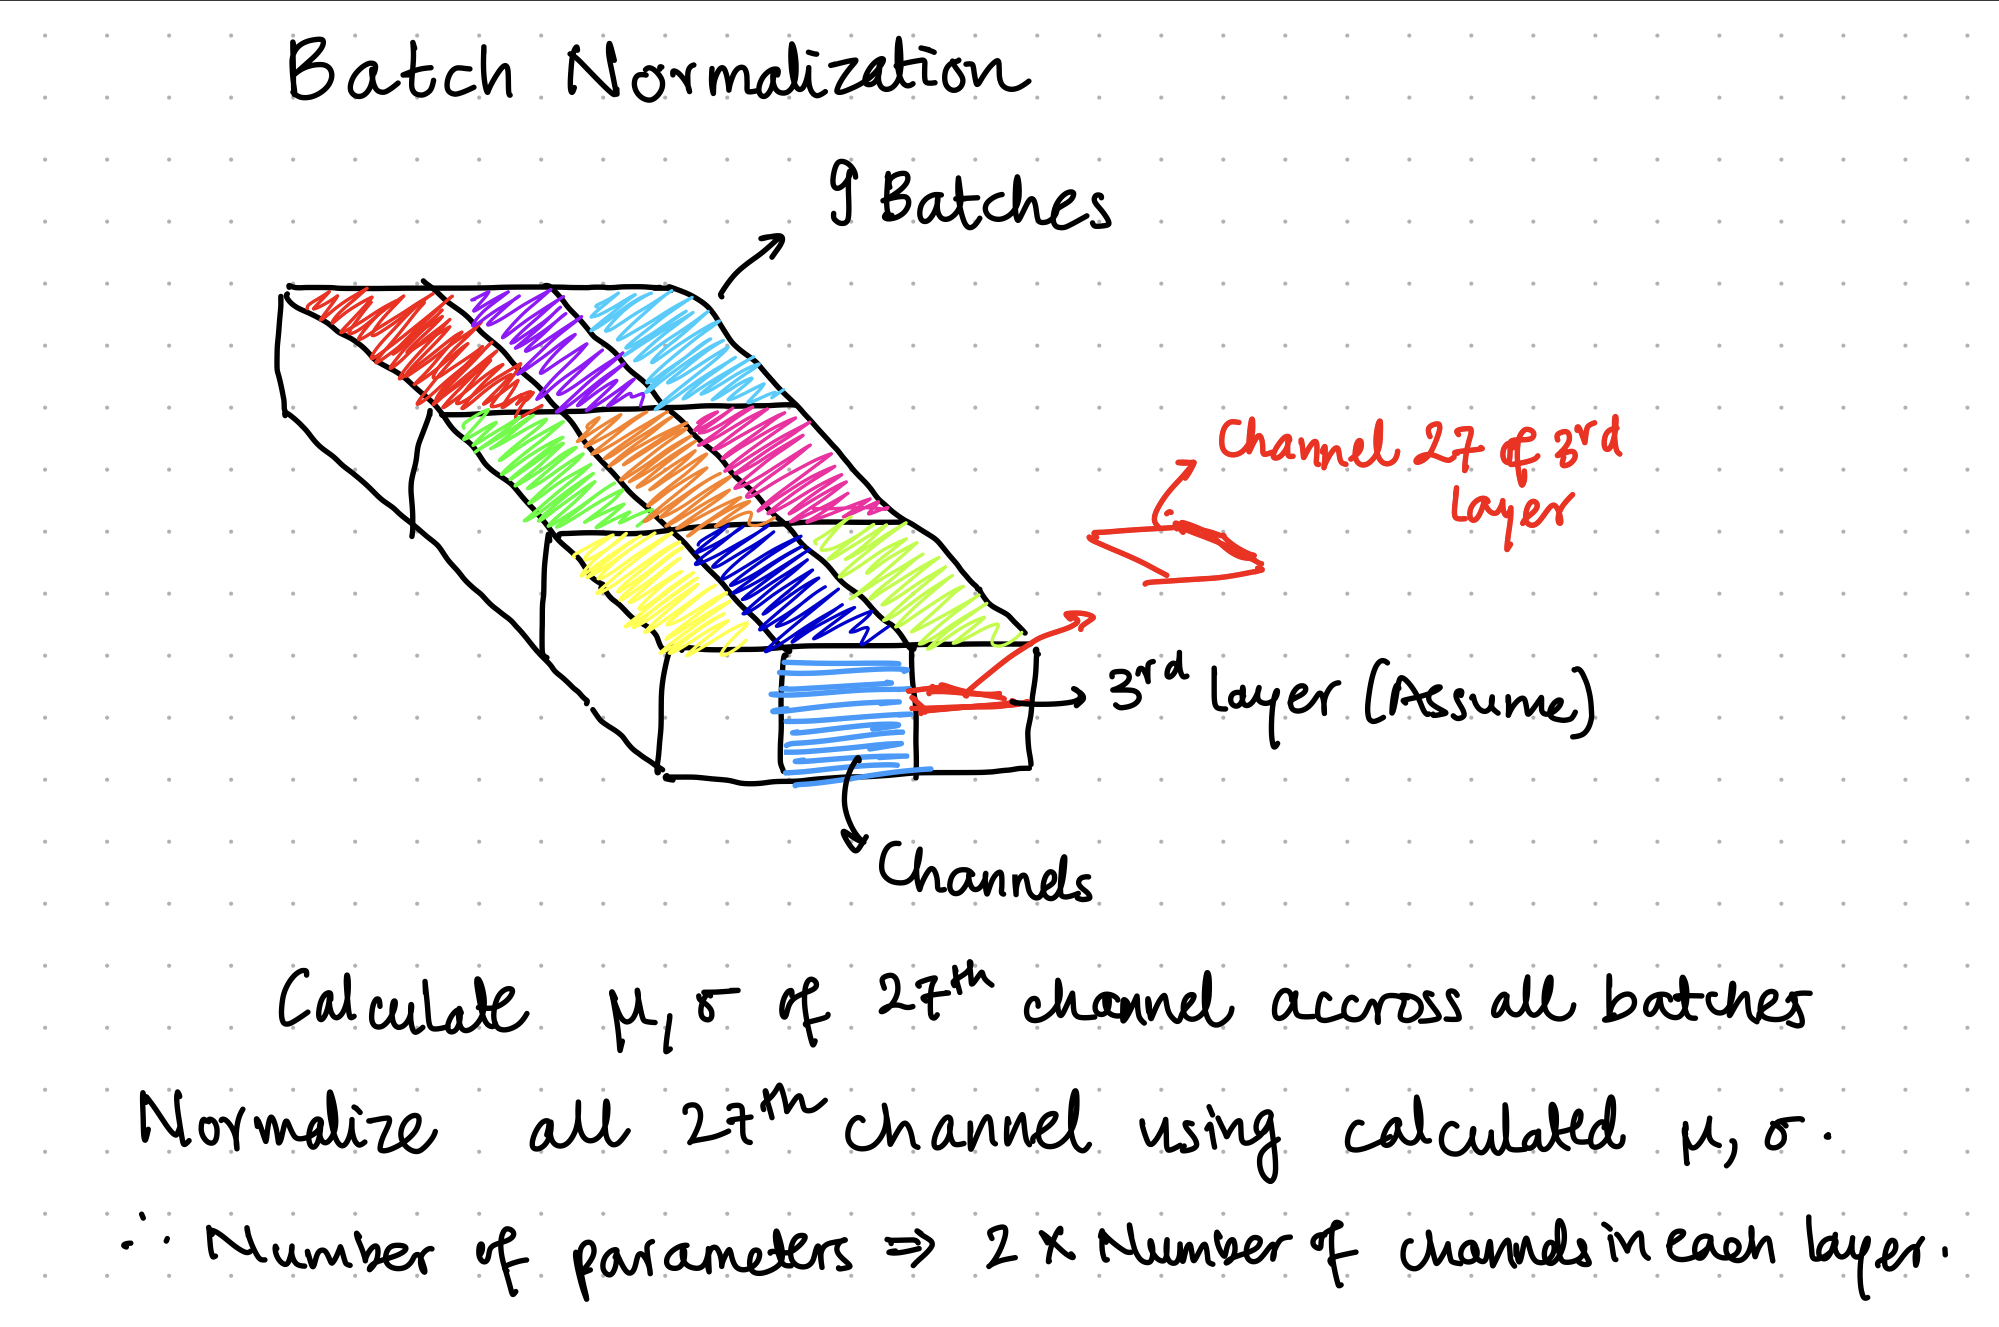 Batch Normalization
9 Batches
Channel 27 of 3rd
Layer
3rd layer (Assume)
Channels
Calculate μ, σ of 27th channel accross all batches
Normalize all 27th channel using calculated μ, σ.
∴ Number of parameters ⇒ 2 × Number of channels in each layer.